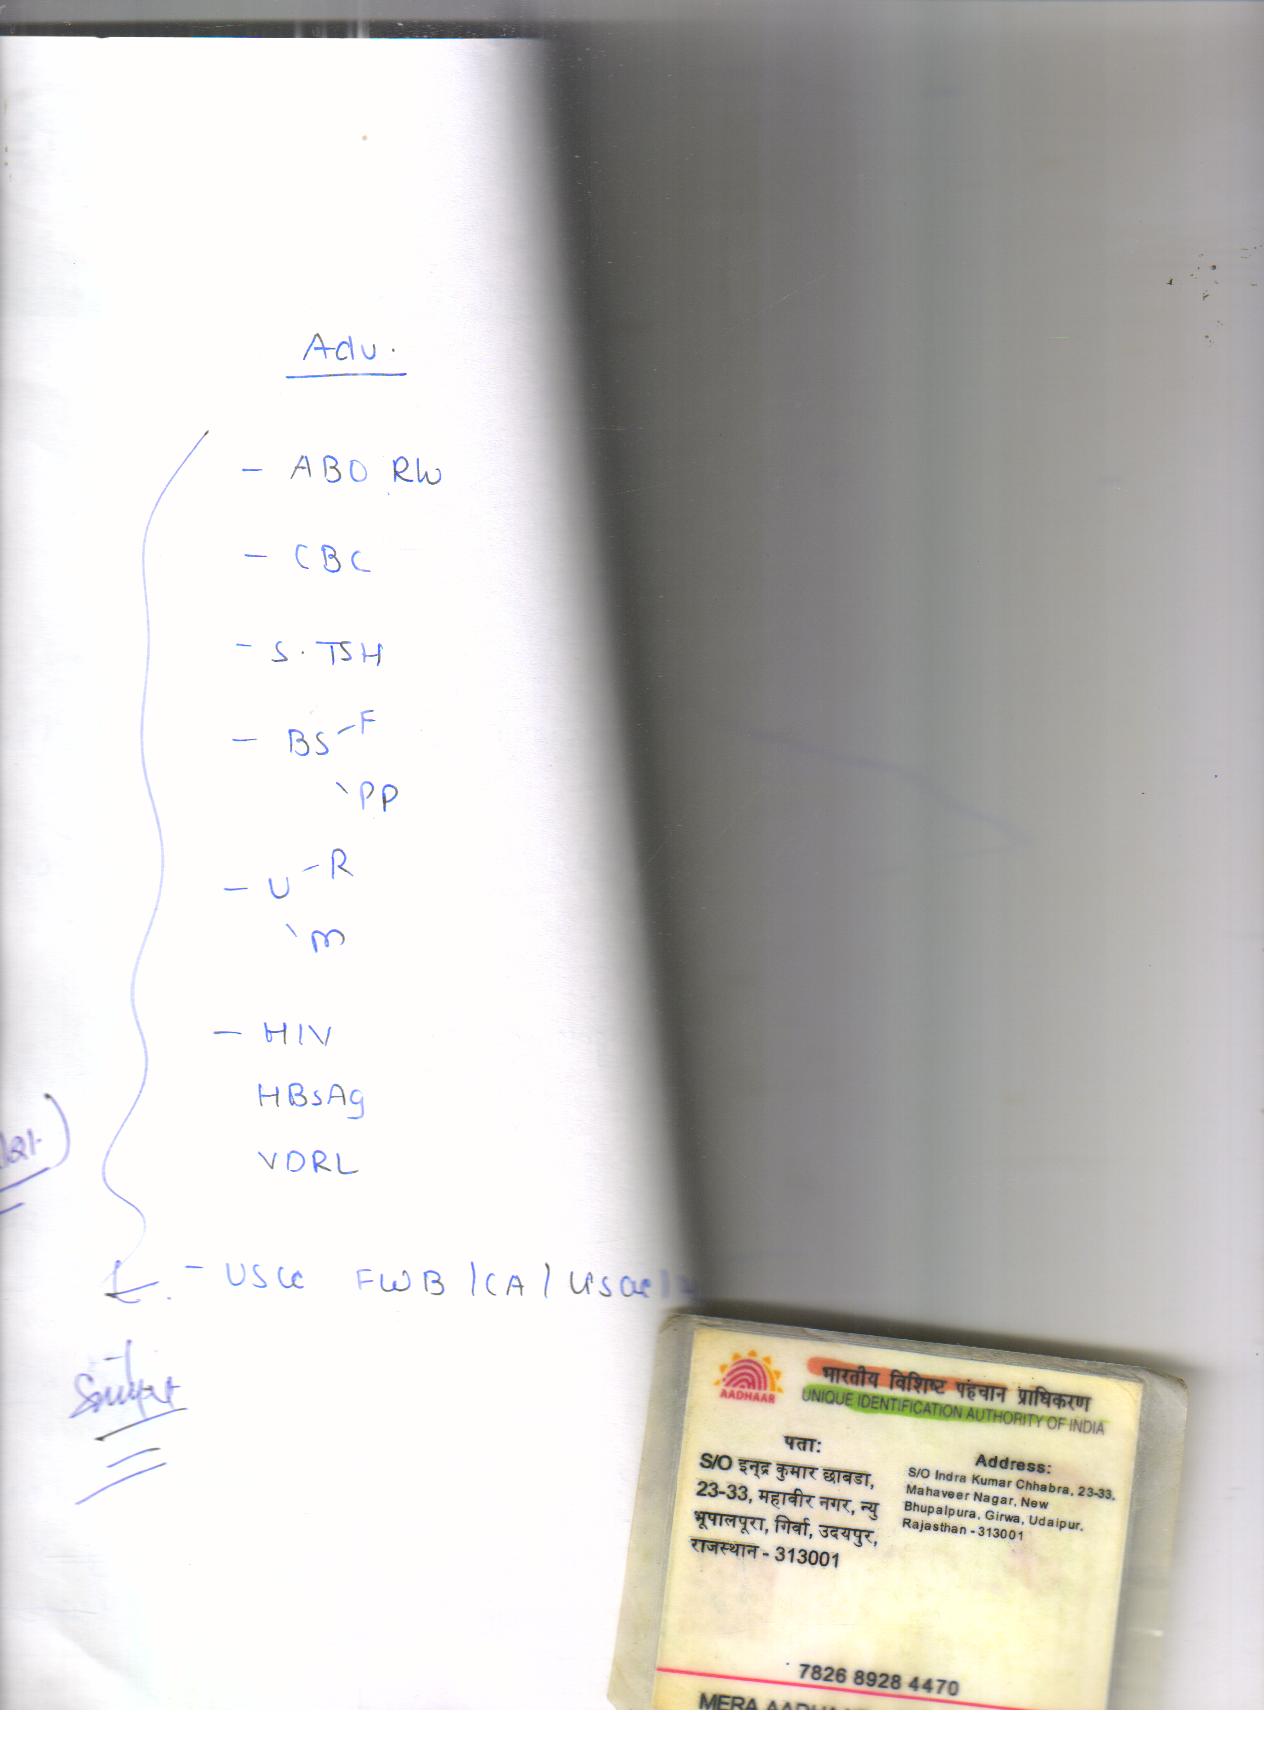 Adv.
- ABO Rh
- CBC
- S. TSH
- BS - F
PP
- U - R
m
- HIV
HBsAg
VDRL
- USG FWB / CA /
AADHAAR
भारतीय विशिष्ट पहचान प्राधिकरण
UNIQUE IDENTIFICATION AUTHORITY OF INDIA
पता:
S/O इन्द्र कुमार छाबडा,
23-33, महावीर नगर, न्यु
भूपालपूरा, गिर्वा, उदयपुर,
राजस्थान - 313001
Address:
S/O Indra Kumar Chhabra, 23-33,
Mahaveer Nagar, New
Bhupalpura, Girwa, Udaipur,
Rajasthan - 313001
7826 8928 4470
MERA